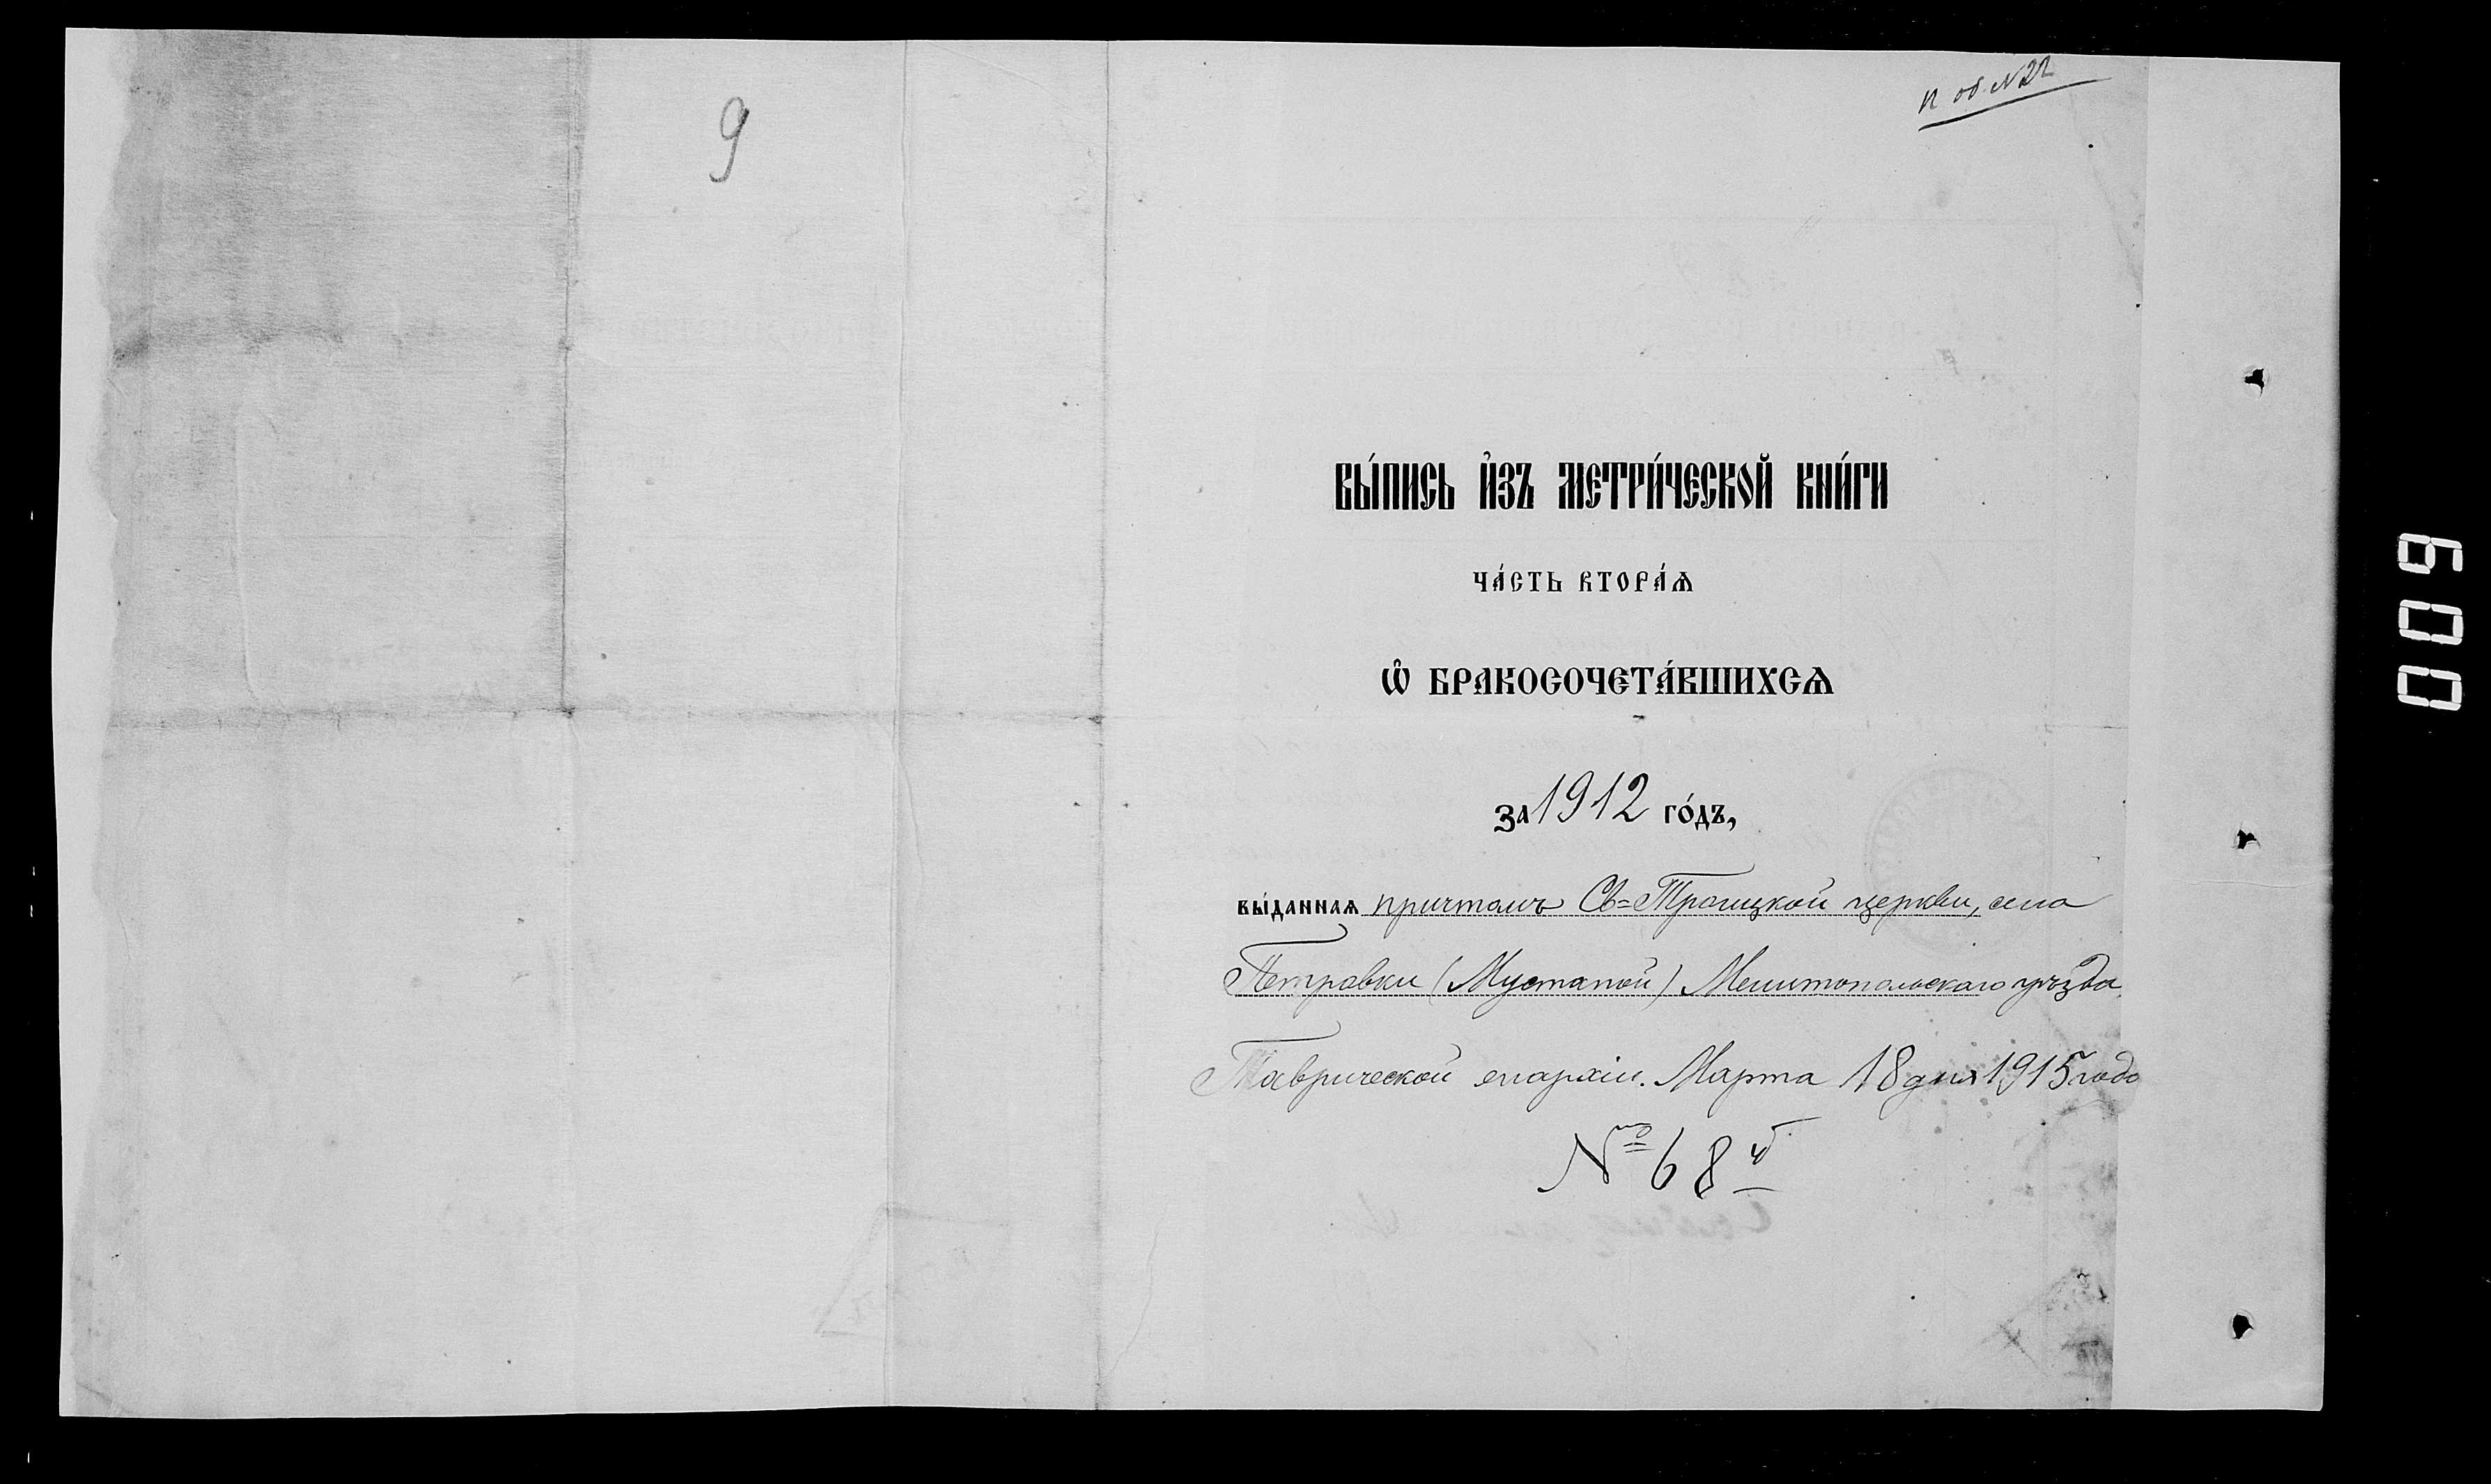 9
№22
ВЫ́ПИСЬ И҆ЗЪ МЕТРИ́ЧЕСКОЙ КНИ́ГИ
ЧА́СТЬ ВТОРА́Ѧ
Ѽ БРАКОСОЧЕТА́ВШИХСѦ
за 1912 го́дъ,
вы́даннаѧ причтомъ Св=Троицкой церкви, села
Петровки (Мустапой) Мелитопольскаго уѣзда,
Таврической епархіи. Марта 18 дня 1915 года
№ 68
009